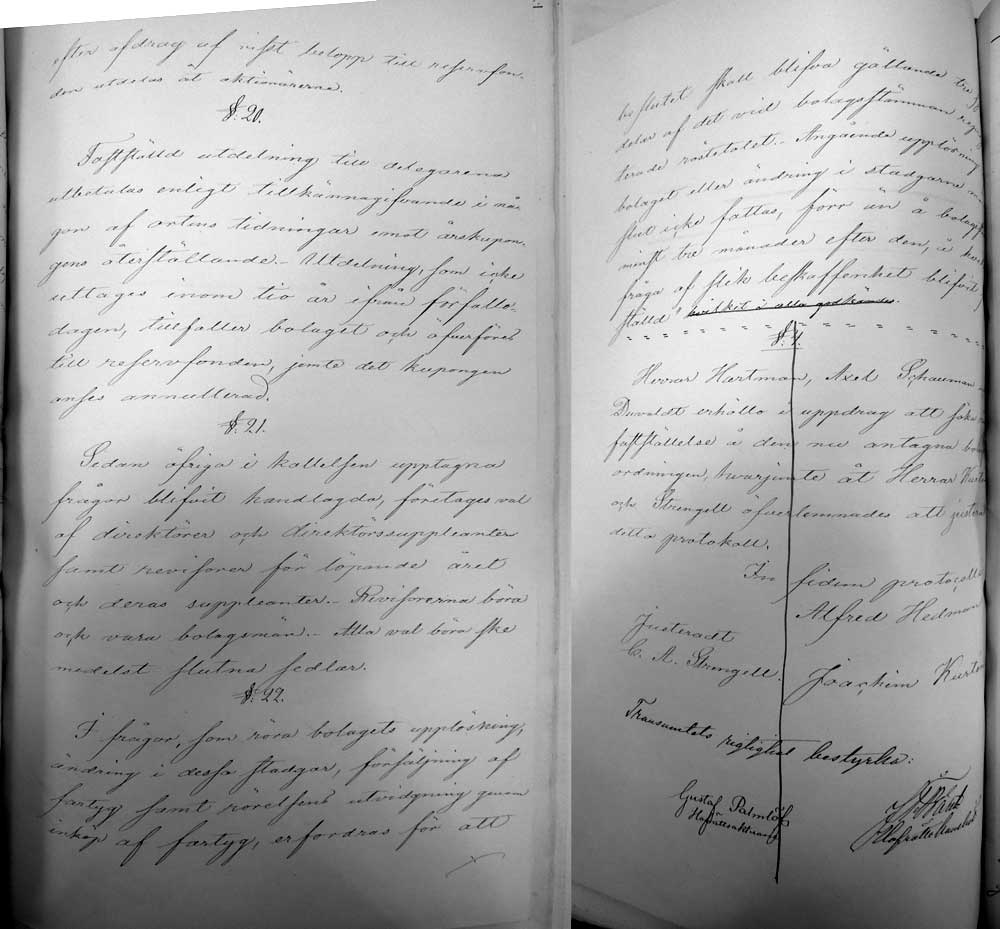 efter afdrag af visst belopp till reservfon-
den utdelas åt aktionärerne.
§. 20.
Fastställd utdelning till delegarena
utbetalas enligt tillkännagifvande i nå-
gon af ortens tidningar emot årskupon-
gens återställande. – Utdelning, som icke
uttages inom tio år ifrån förfallo-
dagen, tillfaller bolaget och öfverföres
till reservfonden, jemte det kupongen
anses annullerad.
§. 21.
Sedan öfriga i kallelsen upptagna
frågor blifvit handlagda, företages val
af direktörer och direktörssuppleanter
samt revisorer för löpande året
och deras suppleanter. – Revisorerna böra
ock vara bolagsmän. – Alla val böra ske
medelst slutna sedlar.
§. 22.
I frågor, som röra bolagets upplösning,
ändring i dessa stadgar, försäljning af
fartyg samt rörelsens utvidgning genom
inköp af fartyg, erfordras för att
beslutet skall blifva gällande tre
delar af det vid bolagsstämman
terade röstetalet. – Angående upplösning
bolaget eller ändring i stadgarne
slut icke fattas, förr än å bolags
minst tre månader efter den, å
fråga af slik beskaffenhet blifvit
ställd" hvilket i allo godkändes.
§. 4.
Herrar Hartman, Axel Schauman
Duvaldt erhöllo i uppdrag att söka
fastställelse å den nu antagna
ordningen, hvarjemte åt Herrar
och Strengell öfverlemnades att justera
detta protokoll.
In fidem protocolli
Alfred Hedman
Justeradt
C. A. Strengell. Joachim
Transumtets rigtighet bestyrka:
Gustaf Palmlöf